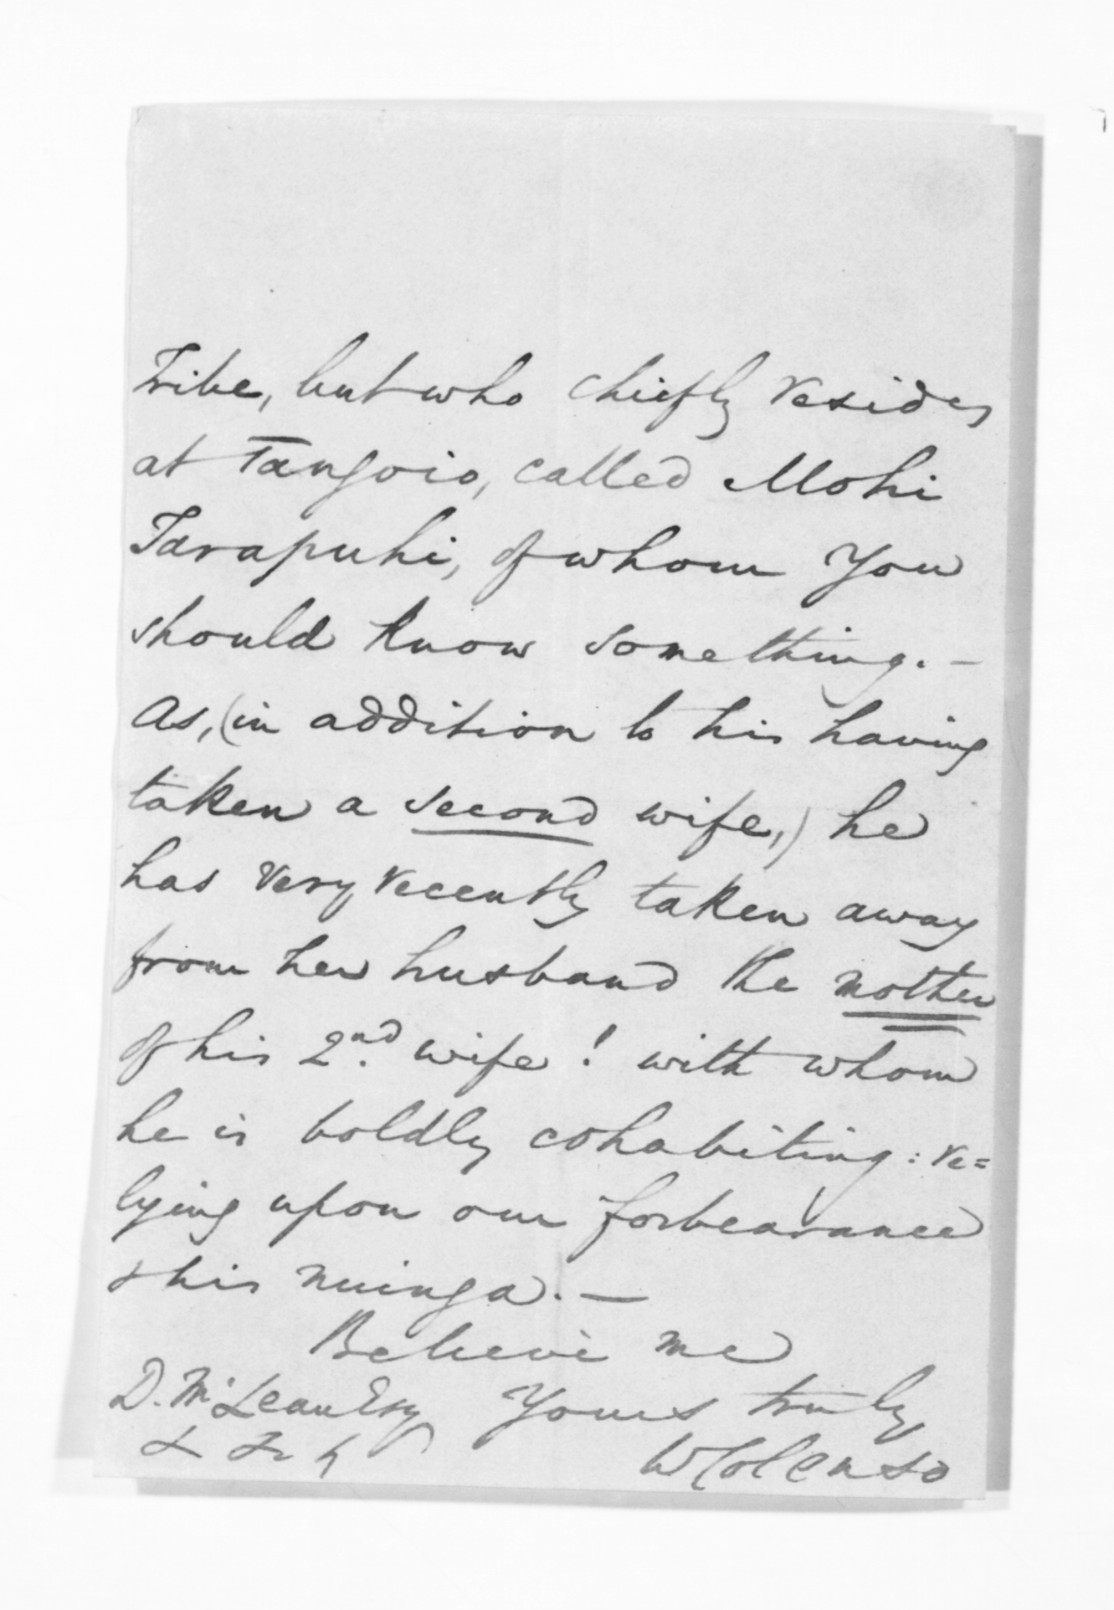 Tribe, but who chiefly resides
at Tangoio, called Mohi
Tarapuhi, of whom you
should know something. —
As, (in addition to his having
taken a second wife,) he
has very recently taken away
from her husband the mother
of his 2nd. wife! with whom
he is boldly cohabiting: re=
lying upon our forbearance
& his nuinga. —
Believe me
D. McLean Esq Yours truly
W Colenso